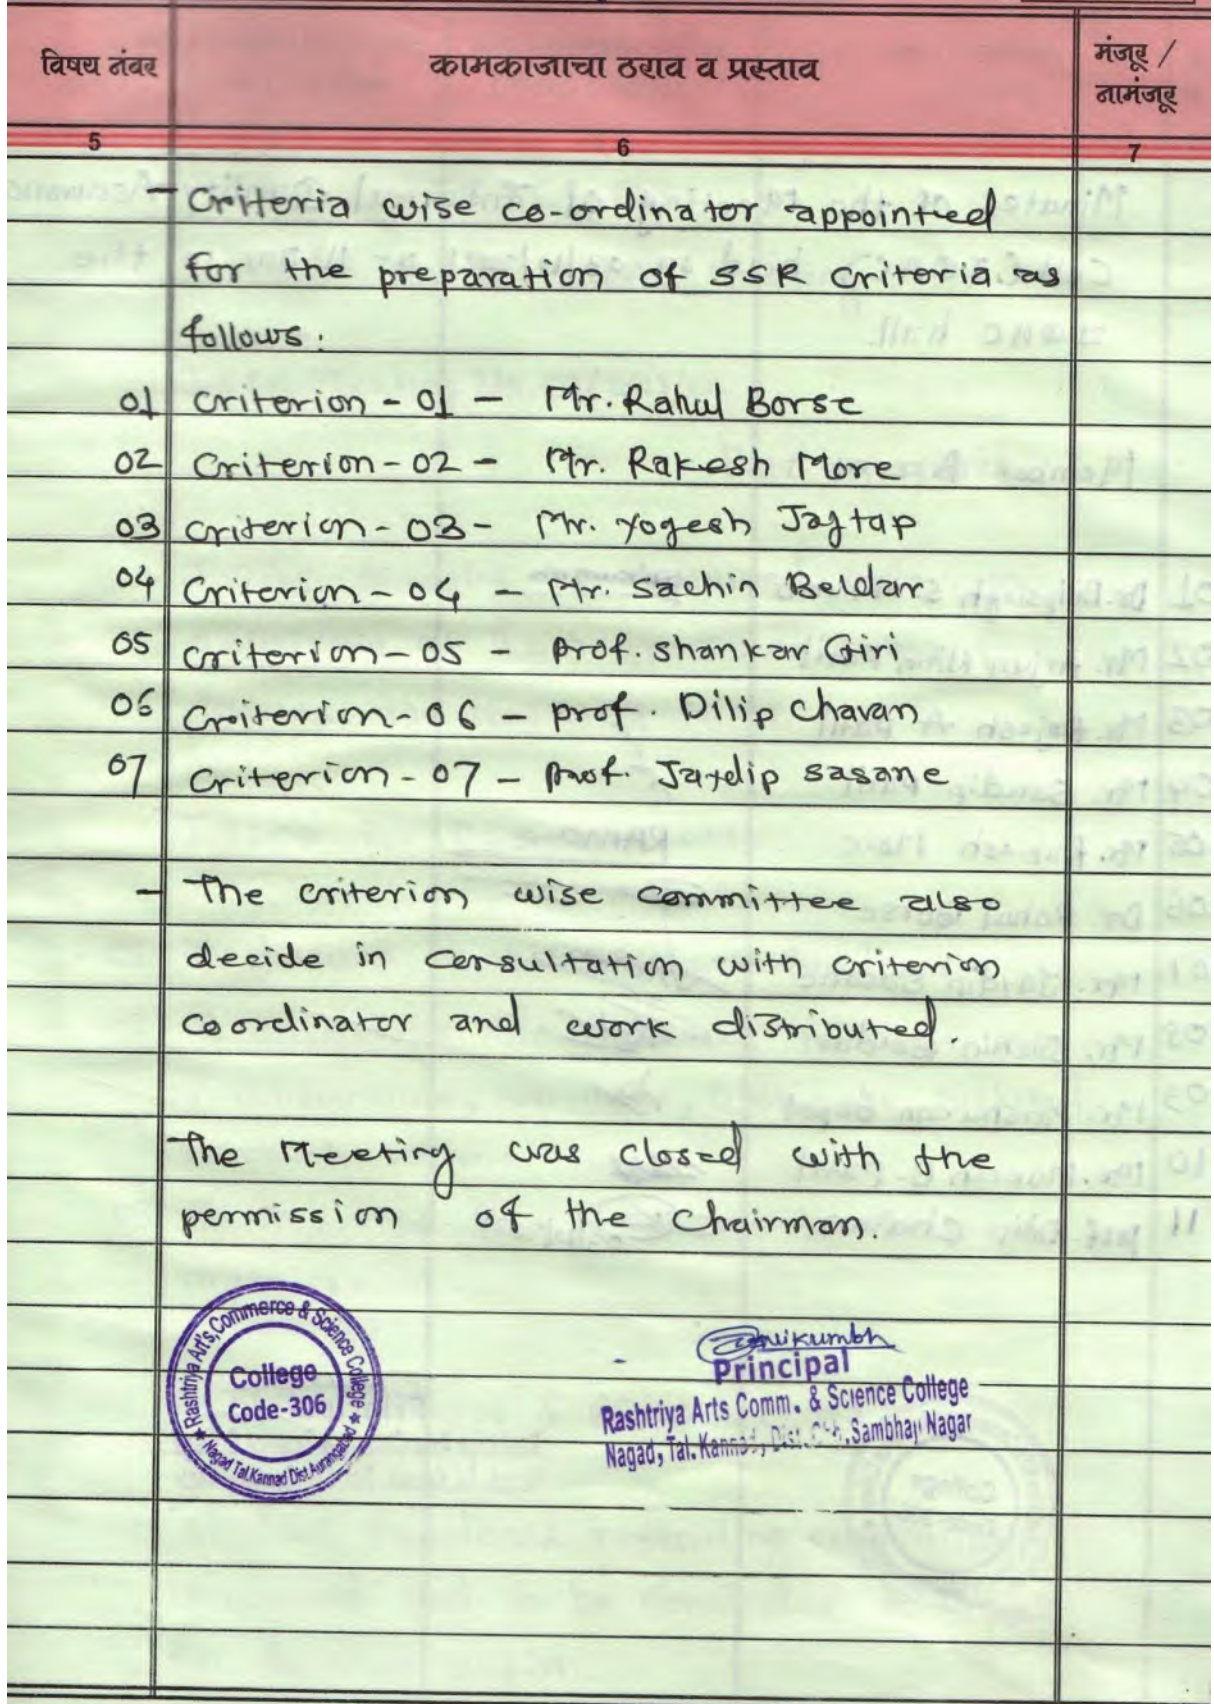 विषय नंबर
कामकाजाचा ठराव व प्रस्ताव
मंजूर /
नामंजूर
5
6
7
- Criteria wise co-ordinator appointed
for the preparation of SSR Criteria as
follows:
01 Criterion - 01 - Mr. Rahul Borse
02 Criterion - 02 - Mr. Rakesh More
03 Criterion - 03 - Mr. Yogesh Jagtap
04 Criterion - 04 - Mr. Sachin Beldar
05 Criterion - 05 - Prof. Shankar Giri
06 Criterion - 06 - prof. Dilip Chavan
07 Criterion - 07 - Prof. Jaydip Sasane
- The criterion wise committee also
decide in consultation with criterion
coordinator and work distributed.
The Meeting was closed with the
permission of the Chairman.
Rashtriya Art's, Commerce & Science College
College
Code-306
Nagad Tal.Kannad Dist.Aurangabad
Principal
Rashtriya Arts Comm. & Science College
Nagad, Tal. Kannad, Dist. Chh. Sambhaji Nagar